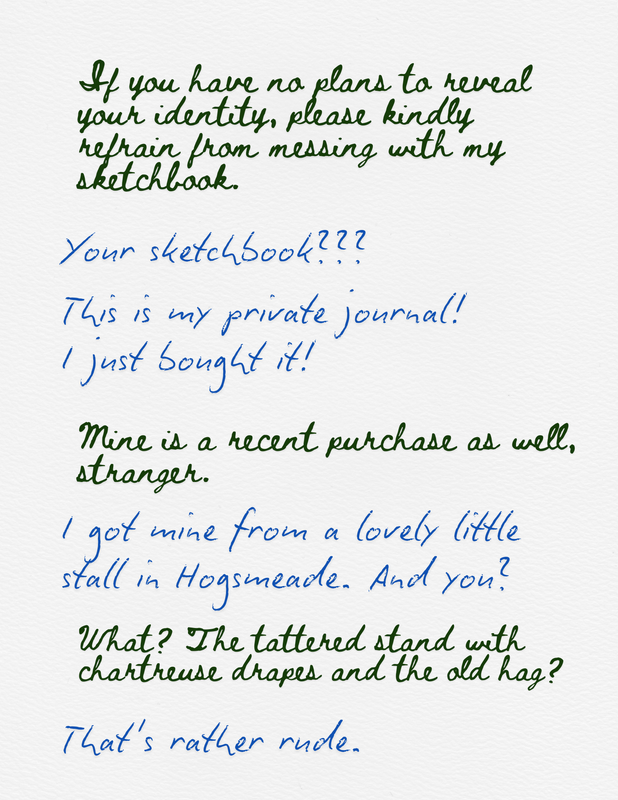 If you have no plans to reveal
your identity, please kindly
refrain from messing with my
sketchbook.
Your sketchbook???
This is my private journal!
I just bought it!
Mine is a recent purchase as well,
stranger.
I got mine from a lovely little
stall in Hogsmeade. And you?
What? The tattered stand with
chartreuse drapes and the old hag?
That's rather rude.